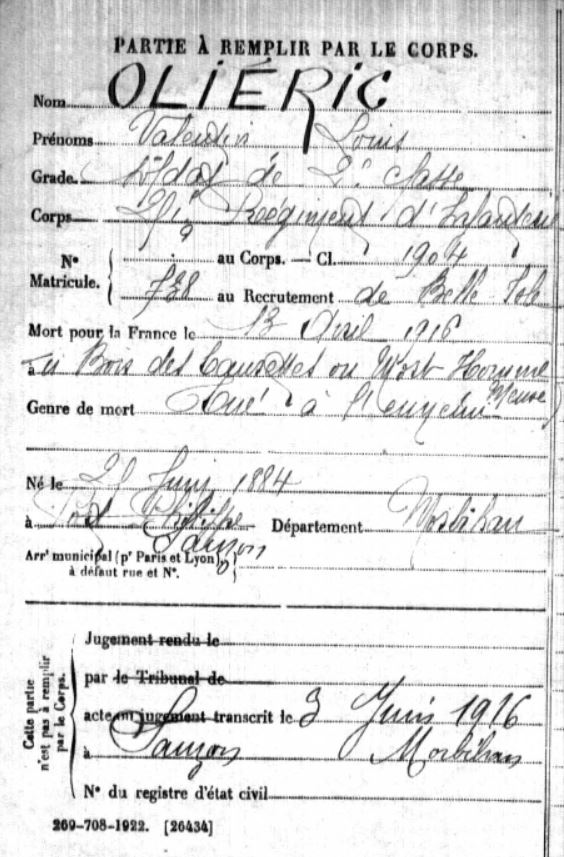 PARTIE À REMPLIR PAR LE CORPS.
Nom OLIÉRIC
Prénoms Valentin Louis
Grade Soldat de 2e classe
Corps Régiment d'Infanterie
N° Matricule. au Corps. — Cl. 1904
au Recrutement de Belle Isle
Mort pour la France le 13 Avril 1916
à au Bois des Caurettes ou Mort Homme (Meuse)
Genre de mort Tué à l'ennemi
Né le Juin 1884
à Port Philippe Département Morbihan
Sauzon
Arrt municipal (pr Paris et Lyon),
à défaut rue et N°.
Cette partie n'est pas à remplir par le Corps.
Jugement rendu le
par le Tribunal de
acte ou jugement transcrit le 3 Juin 1916
à Sauzon Morbihan
N° du registre d'état civil
269-708-1922. [26434]